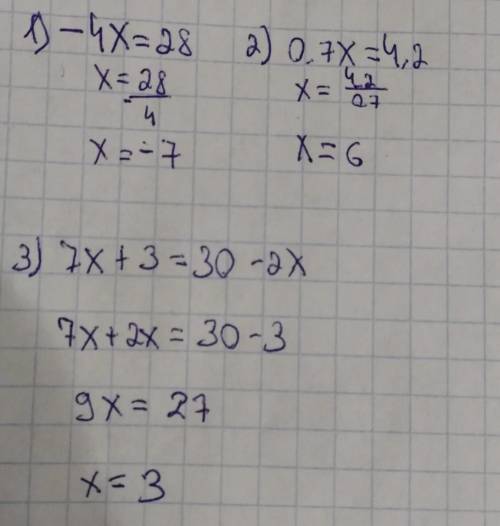 1) -4x=28
x=28/-4
x=-7
2) 0.7x=4,2
x=4.2/0.7
x=6
3) 7x+3=30-2x
7x+2x=30-3
9x=27
x=3